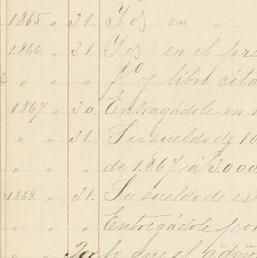 1865 " 31. Id en "
1866 " 31. Id en el pre
" " fº y libro cita
1867 " 30. Entregádole en
" " 31. Su sueldo de 10
de 1867 á $3.000
1868 " 31. Su sueldo de es
Entregádole por